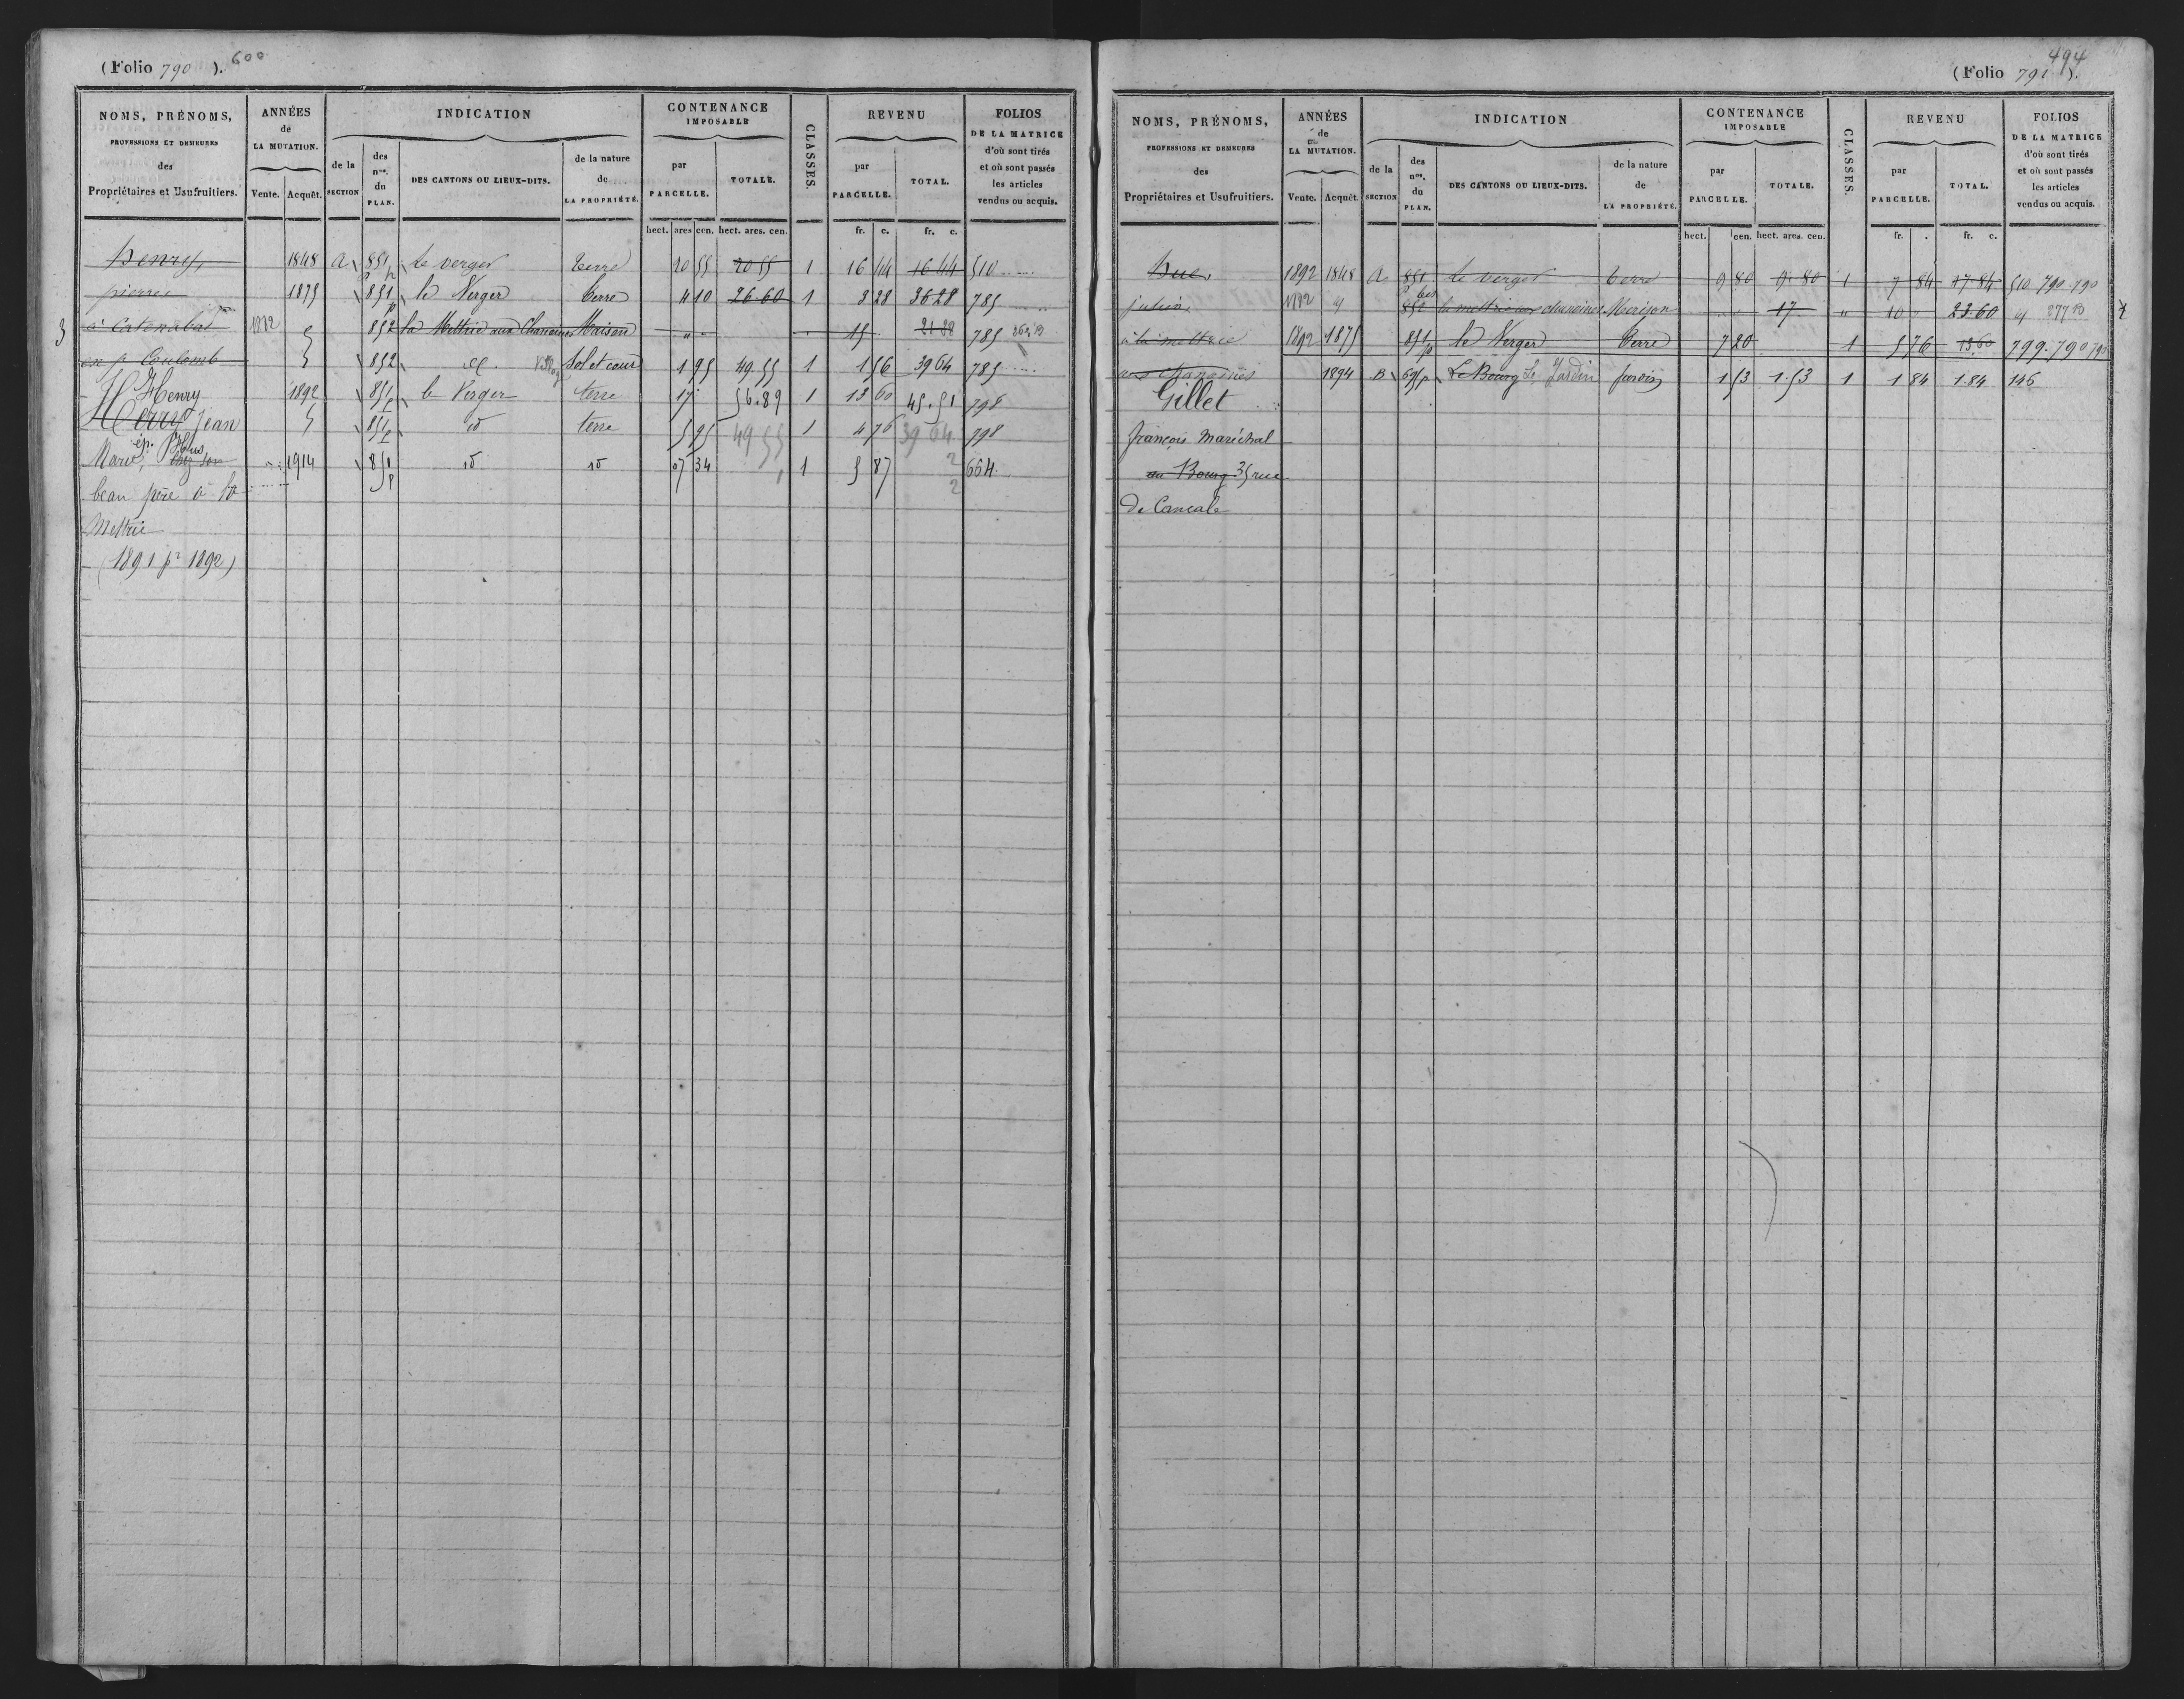 (Folio 790 ). 600
NOMS, PRÉNOMS, PROFESSIONS ET DEMEURES des Propriétaires et Usufruitiers.
ANNÉES de LA MUTATION. Vente. Acquêt.
INDICATION de la SECTION des nos. du PLAN. DES CANTONS OU LIEUX-DITS. de la nature de LA PROPRIÉTÉ.
CONTENANCE IMPOSABLE par PARCELLE. TOTALE.
CLASSES.
REVENU par PARCELLE. TOTAL.
FOLIOS DE LA MATRICE d'où sont tirés et où sont passés les articles vendus ou acquis.
hect. ares cen. hect. ares. cen. fr. c. fr. c.
henry 1848 a 851 p le verger terre 20 55 20 55 1 16 44 16 44 510
pierre 1875 851 p le Verger terre 4 10 26.60 1 3 28 36 28 785
3 à Catenabat 1882 852 la Mettrie aux Chanoines Maison " 15 21 88 785
en p Coulomb 852 Sol et cour 1 95 49.55 1 1 56 39 64 785
Henry 1892 851 p le Verger terre 17 56.89 1 13 60 45.51 798
Henry Jean 851 p id terre 5 95 49 55 1 4 76 39 64 798
Marie, ép. chez son 1914 851 p id id 07 34 1 5 87 664
beau père à la
Mettrie
(1891 pr 1892)
(Folio 791 ). 494
NOMS, PRÉNOMS, PROFESSIONS ET DEMEURES des Propriétaires et Usufruitiers.
ANNÉES de LA MUTATION. Vente. Acquêt.
INDICATION de la SECTION des nos. du PLAN. DES CANTONS OU LIEUX-DITS. de la nature de LA PROPRIÉTÉ.
CONTENANCE IMPOSABLE par PARCELLE. TOTALE.
CLASSES.
REVENU par PARCELLE. TOTAL.
FOLIOS DE LA MATRICE d'où sont tirés et où sont passés les articles vendus ou acquis.
hect. cen. hect. ares. cen. fr. . fr. c.
hue 1892 1848 a 851 p le verger terre 9 80 9. 80 1 7 84 17 84 510 790.790
julien 1882 " 852 bis la mettrie aux chanoines Maison 17 " 10 " 23.60 " 277 B
à la mettrie 1892 1875 851 p le Verger terre 7 20 1 5 76 13.60 799.790 790
aux chanoines 1894 B 695 p Le Bourg Le Jardin jardin 1 53 1.53 1 1 84 1.84 146
Gillet
françois maréchal
au Bourg 35 rue
de Cancale